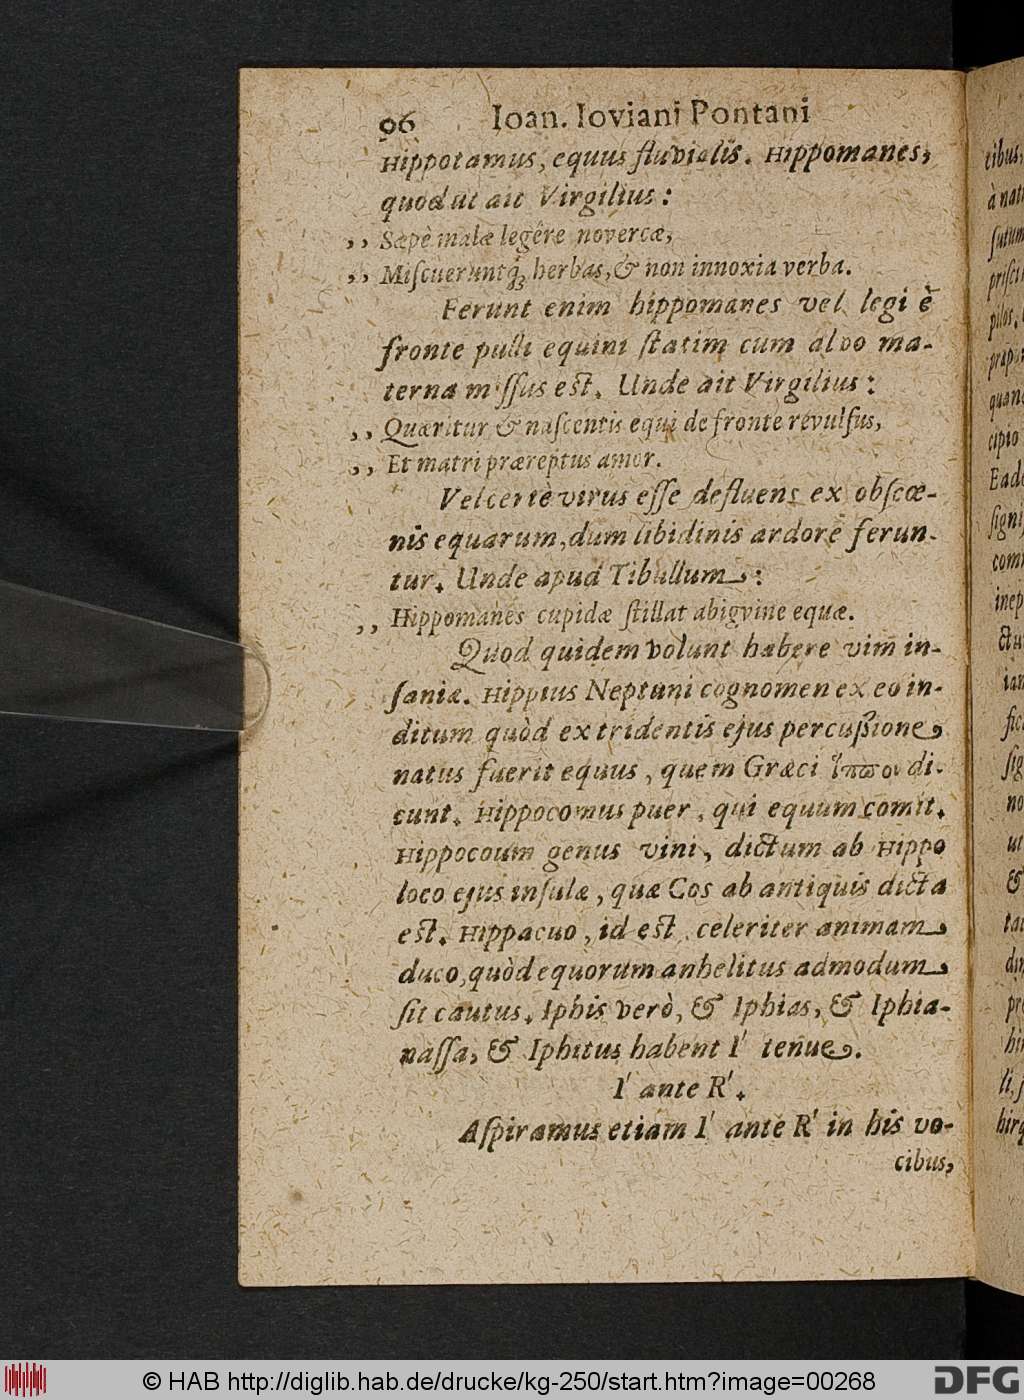 96 Ioan. Ioviani Pontani
Hippotamus, equus fluvialis. Hippomanes,
quod ut ait Virgilius:
,, Sæpè malæ legêre novercæ,
,, Miſcueruntq́ꝫ herbas, & non innoxia verba.
Ferunt enim hippomanes vel legi è
fronte pulli equini ſtatim cum alvo ma-
terna miſſus est. Unde ait Virgilius:
,, Quæritur & naſcentis equi de fronte revulſus,
,, Et matri præreptus amor.
Vel certè virus eſſe defluens ex obſcœ-
nis equarum, dum libidinis ardore ferun-
tur. Unde apud Tibullum:
,, Hippomanes cupidæ ſtillat abigvine equæ.
Quod quidem volunt habere vim in-
ſaniæ. Hippius Neptuni cognomen ex eo in-
ditum quòd ex tridentis ejus percuſsione
natus fuerit equus, quem Græci ἵπποι di-
cunt. Hippocomus puer, qui equum comit.
Hippocoum genus vini, dictum ab Hippo
loco ejus inſulæ, quæ Cos ab antiquis dicta
est. Hippacuo, id est, celeriter animam
duco, quòd equorum anhelitus admodum
ſit cautus. Iphis verò, & Iphias, & Iphia-
naſſa, & Iphitus habent I' tenue.
I' ante R'.
Aſpiramus etiam I' ante R' in his vo-
cibus,
tibus,
à nat
ſutum
priſci
pilos,
præpar
quan
cipio
Eade
ſigni
com
inep
ctu
ian
fic
ſig
no
ut
&
tan
din
pr
hir
li, ſ
hirq
© HAB http://diglib.hab.de/drucke/kg-250/start.htm?image=00268
DFG